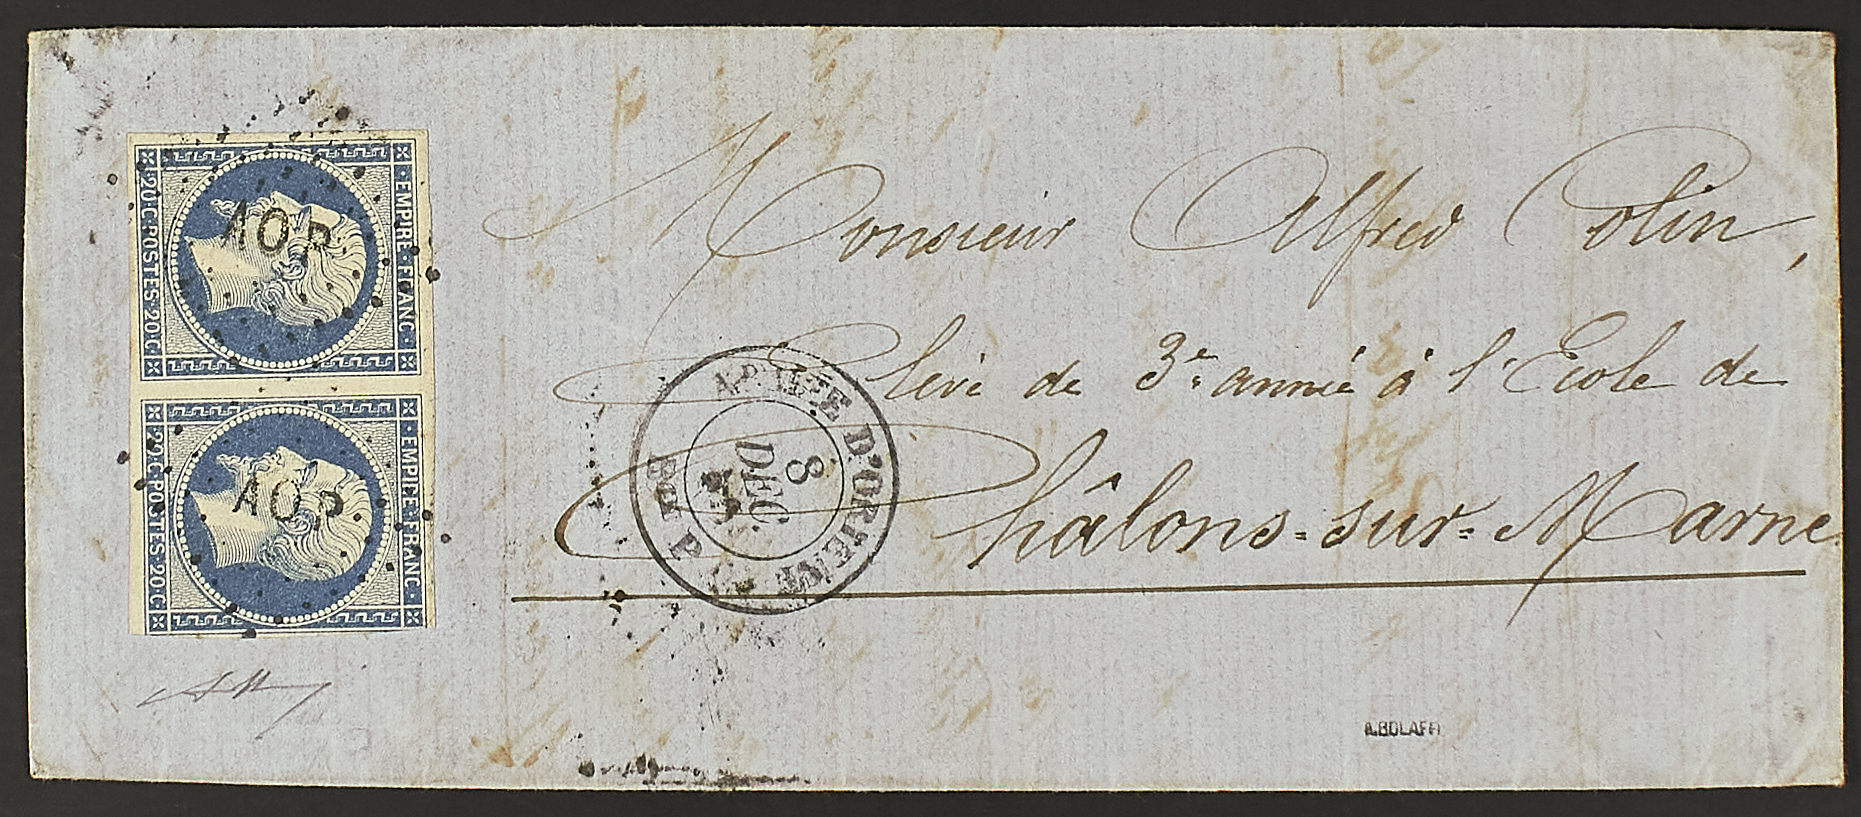 EMPIRE · FRANC ·
20 · C · POSTES · 20 · C
AO.P
EMPIRE · FRANC ·
20 · C · POSTES · 20 · C
AO.P
ARMÉE D'ORIENT
8
DEC.
Bau P
Monsieur Alfred Colin,
Elève de 3e année à l'Ecole de
Châlons-sur-Marne
A.BOLAFFI